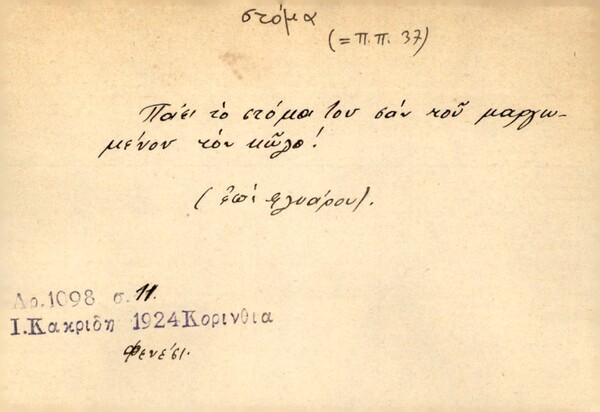 στόμα
(= Π.Π. 37)
Πάει τὸ στόμα του σάν τοῦ μαργω-
μένου τὸν κῶλο!
(ἐπί φλυάρου).
Αρ.1098 σ. 11.
Ι.Κακριδη 1924 Κορινθια
Φενέσι.